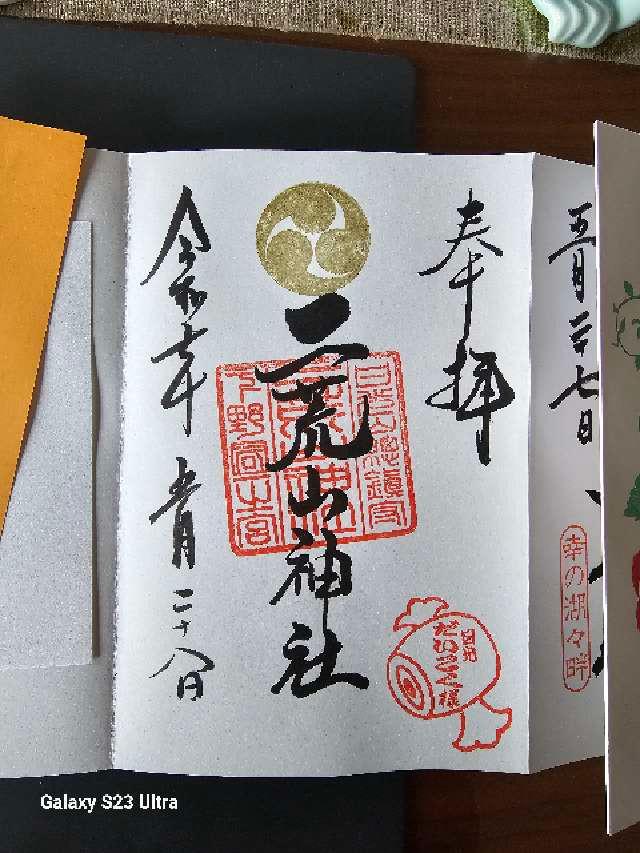 五月二十七日
幸の湖々畔
奉拝
二荒山神社
日光山総鎮守
下野国一之宮
日光
だいこく様
令和七年 五月二十八日
Galaxy S23 Ultra